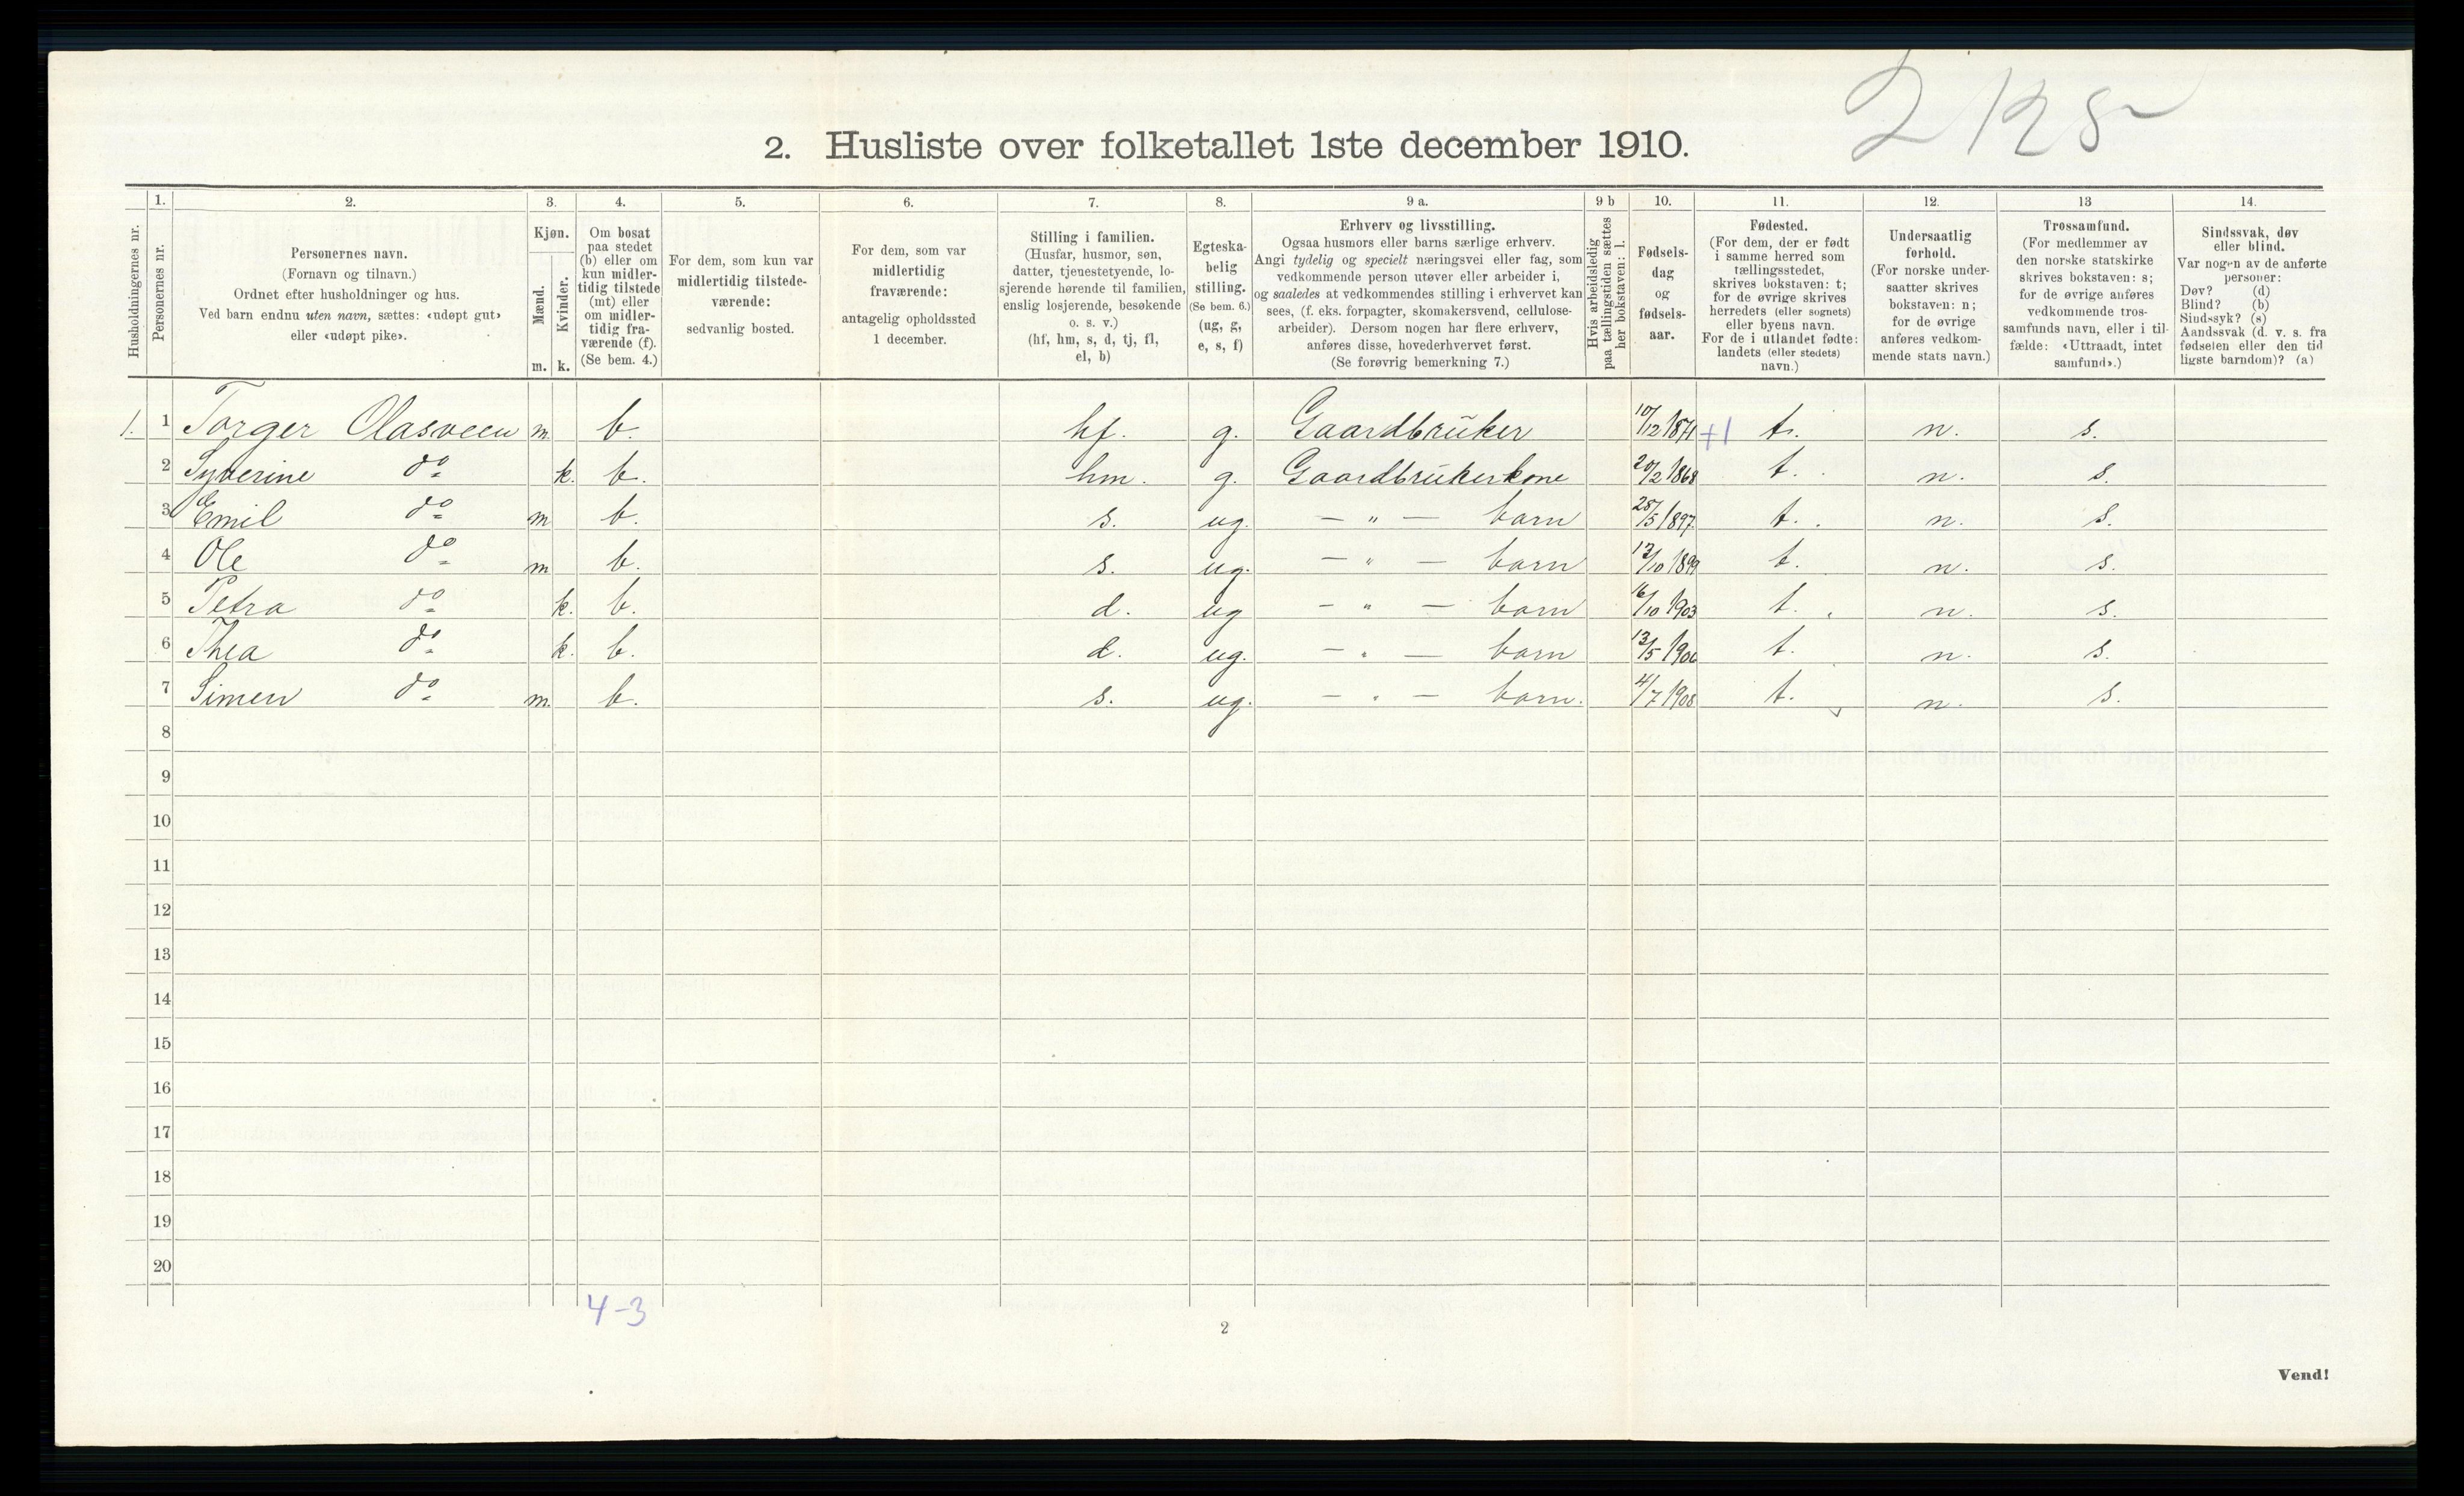 2125
2. Husliste over folketallet 1ste december 1910.
Husholdningernes nr.
1.
Personernes nr.
2.
Personernes navn.
(Fornavn og tilnavn.)
Ordnet efter husholdninger og hus.
Ved barn endnu uten navn, sættes: «udøpt gut»
eller «udøpt pike».
3.
Kjøn.
Mænd.
Kvinder.
m. k.
4.
Om bosat
paa stedet
(b) eller om
kun midler-
tidig tilstede
(mt) eller
om midler-
tidig fra-
værende (f).
(Se bem. 4.)
5.
For dem, som kun var
midlertidig tilstede-
værende:
sedvanlig bosted.
6.
For dem, som var
midlertidig
fraværende:
antagelig opholdssted
1 december.
7.
Stilling i familien.
(Husfar, husmor, søn,
datter, tjenestetyende, lo-
sjerende hørende til familien,
enslig losjerende, besøkende
o. s. v.)
(hf, hm, s, d, tj, fl,
el, b)
8.
Egteska-
belig
stilling.
(Se bem. 6.)
(ug, g,
e, s, f)
9 a.
Erhverv og livsstilling.
Ogsaa husmors eller barns særlige erhverv.
Angi tydelig og specielt næringsvei eller fag, som
vedkommende person utøver eller arbeider i,
og saaledes at vedkommendes stilling i erhvervet kan
sees, (f. eks. forpagter, skomakersvend, cellulose-
arbeider). Dersom nogen har flere erhverv,
anføres disse, hovederhvervet først.
(Se forøvrig bemerkning 7.)
9 b
Hvis arbeidsledig
paa tællingstiden sættes
her bokstaven: l.
10.
Fødsels-
dag
og
fødsels-
aar.
11.
Fødested.
(For dem, der er født
i samme herred som
tællingsstedet,
skrives bokstaven: t;
for de øvrige skrives
herredets (eller sognets)
eller byens navn.
For de i utlandet fødte:
landets (eller stedets)
navn.)
12.
Undersaatlig
forhold.
(For norske under-
saatter skrives
bokstaven: n;
for de øvrige
anføres vedkom-
mende stats navn.)
13
Trossamfund.
(For medlemmer av
den norske statskirke
skrives bokstaven: s;
for de øvrige anføres
vedkommende tros-
samfunds navn, eller i til-
fælde: «Uttraadt, intet
samfund».)
14.
Sindssvak, døv
eller blind.
Var nogen av de anførte
personer:
Døv? (d)
Blind? (b)
Sindssyk? (s)
Aandssvak (d. v. s. fra
fødselen eller den tid
ligste barndom)? (a)
1. 1 Torger Olasveen m. b. hf. g. Gaardbrüker 10/12 1871 +1 t. n. s.
2 Syverine do k. b. hm. g. Gaardbrükerkone 20/2 1868 t. n. s.
3 Emil do m b. s. ug. – " – barn 28/5 1897 t. n. s.
4 Ole do m b. s. ug. – " – barn 13/10 1899 t. n. s.
5 Petra do k. b. d. ug – " – barn 16/10 1903 t. n. s.
6 Thea do k. b. d. ug. – " – barn 13/5 1906 t. n. s.
7 Simen do m. b. s. ug. – " – barn. 4/7 1908 t. n. s.
8
9
10
11
12
13
14
15
16
17
18
19
20
4-3
2
Vend!